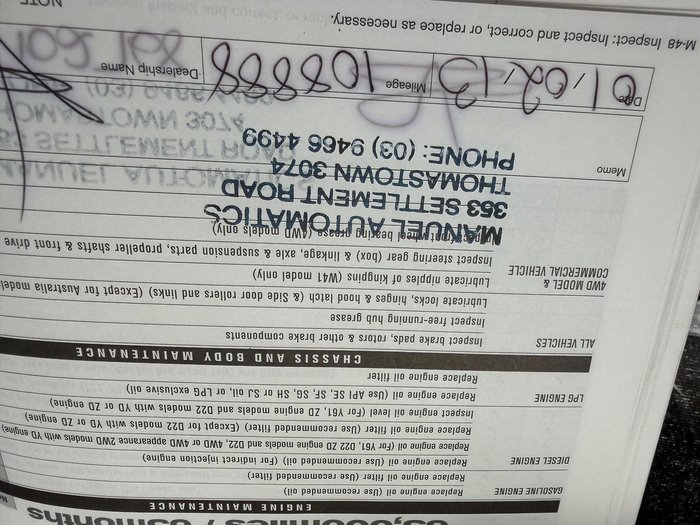 ENGINE MAINTENANCE
GASOLINE ENGINE Replace engine oil (Use recommended oil)
Replace engine oil filter (Use recommended filter)
DIESEL ENGINE Replace engine oil (Use recommended oil) (For indirect injection engine)
Replace engine oil (For Y61, D22 ZD engine models and D22, 4WD or 4WD appearance 2WD models with YD engine)
Replace engine oil filter (Use recommended filter) (Except for D22 models with YD or ZD engine)
Inspect engine oil level (For Y61, ZD engine models and D22 models with YD or ZD engine)
LPG ENGINE Replace engine oil (Use API SE, SF, SG, SH or SJ oil, or LPG exclusive oil)
Replace engine oil filter
CHASSIS AND BODY MAINTENANCE
ALL VEHICLES Inspect brake pads, rotors & other brake components
Inspect free-running hub grease
Lubricate locks, hinges & hood latch (& Side door rollers and links) (Except for Australia model
4WD MODEL & COMMERCIAL VEHICLE Lubricate nipples of kingpins (W41 model only)
Inspect steering gear (box) & linkage, axle & suspension parts, propeller shafts & front drive
front wheel bearing grease (4WD models only)
MANUEL AUTOMATICS
353 SETTLEMENT ROAD
THOMASTOWN 3074
PHONE: (03) 9466 4499
Memo
Date 01/02/13 Mileage 108888 Dealership Name
M-48 Inspect: Inspect and correct, or replace as necessary.
NOTE